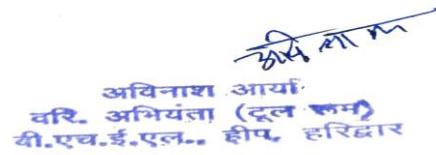 अविनाश
अविनाश आर्या
वरि. अभियंता (टूल रूम)
बी.एच.ई.एल., हीप, हरिद्वार